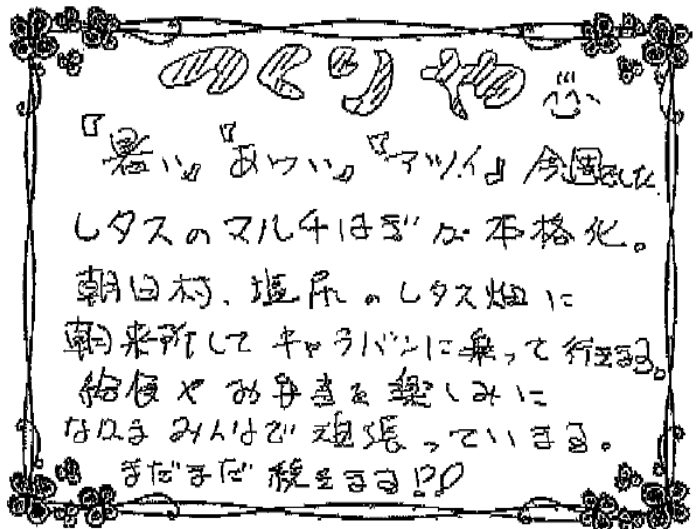 つくりな
『暑い』『あつい』『アツイ』今週でした
レタスのマルチはぎが本格化。
朝日村、塩尻のレタス畑に
朝来所してキャラバンに乗って行きます。
給食やお弁当を楽しみに
ながらみんなで頑張っています。
まだまだ続きます!?